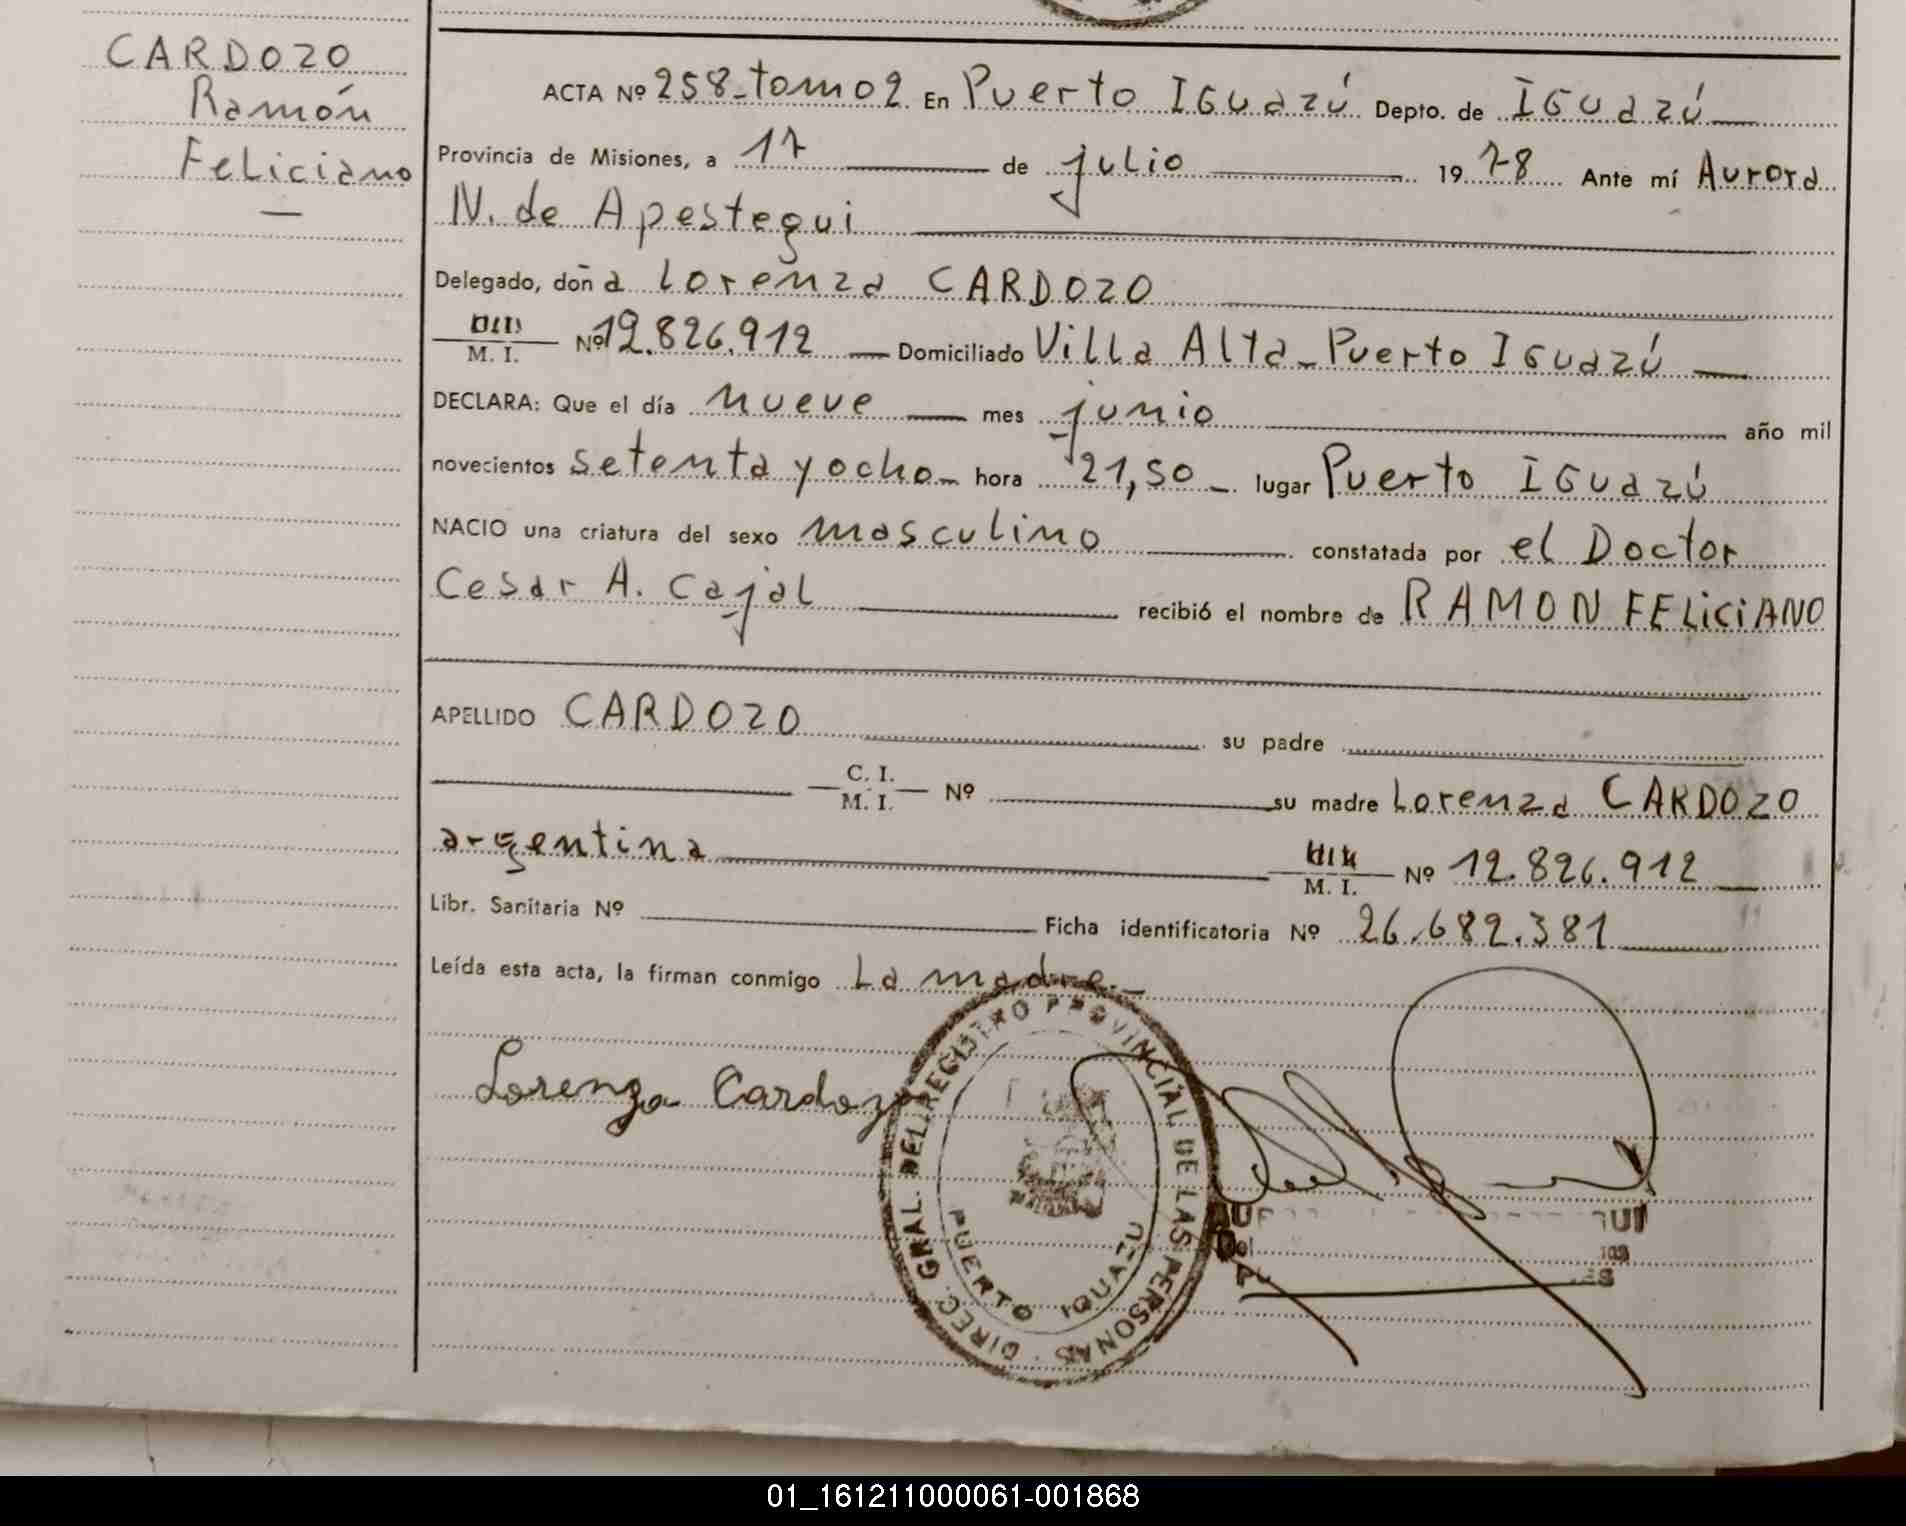 CARDOZO
Ramón
Feliciano
ACTA Nº 258-tomo 2 En Puerto IGuazú Depto. de IGuazú
Provincia de Misiones, a 17 de julio 1978 Ante mí Aurora
N. de Apestegui
Delegado, doña Lorenza CARDOZO
M. I. Nº 12.826.912 Domiciliado Villa Alta - Puerto IGuazú
DECLARA: Que el día nueve mes junio año mil
novecientos setenta y ocho hora 21,50 lugar Puerto IGuazú
NACIO una criatura del sexo masculino constatada por el Doctor
Cesar A. Cajal recibió el nombre de RAMON FELiCiANO
APELLIDO CARDOZO su padre
C. I.
M. I. Nº su madre Lorenza CARDOZO
argentina M. I. Nº 12.826.912
Libr. Sanitaria Nº Ficha identificatoria Nº 26.682.381
Leída esta acta, la firman conmigo La madre.-
Lorenza Cardozo
DIREC. GRAL. DEL REGISTRO PROVINCIAL DE LAS PERSONAS
PUERTO IGUAZU
01_161211000061-001868